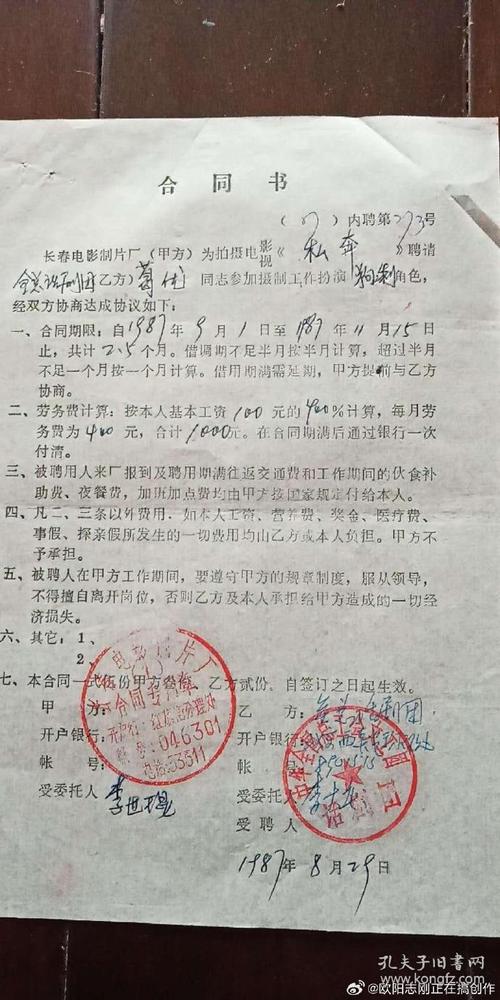 合同书
(87)内聘第273号
长春电影制片厂(甲方)为拍摄电影视《私奔》聘请
全总话剧团乙方)葛优同志参加摄制工作扮演狗剩角色,
经双方协商达成协议如下:
一、合同期限:自1987年9月1日至1987年11月15日
止,共计2.5个月。借调期不足半月按半月计算,超过半月
不足一个月按一个月计算。借用期满需延期,甲方提前与乙方
协商。
二、劳务费计算:按本人基本工资100元的400%计算,每月劳
务费为400元,合计1000元。在合同期满后通过银行一次
付清。
三、被聘用人来厂报到及聘用期满往返交通费和工作期间的伙食补
助费、夜餐费,加班加点费均由甲方按国家规定付给本人。
四、凡二、三条以外费用,如本人工资、营养费、奖金、医疗费、
事假、探亲假所发生的一切费用均由乙方或本人负担。甲方不
予承担。
五、被聘人在甲方工作期间,要遵守甲方的规章制度,服从领导,
不得擅自离开岗位,否则乙方及本人承担给甲方造成的一切经
济损失。
六、其它:1、
2、
七、本合同一式伍份甲方叁份,乙方贰份,自签订之日起生效。
甲方: 乙方:全总话剧团
开户银行: 开户银行:
帐号: 帐号:
受委托人 李世 受委托人 李
受聘人
1987年8月29日
电影制片厂
合同专用章
开户行:红旗街办理处
帐号:046301
电话:53311
中华全国总工会
话剧团
孔夫子旧书网
www.kongfz.com
@欧阳志刚正在搞创作